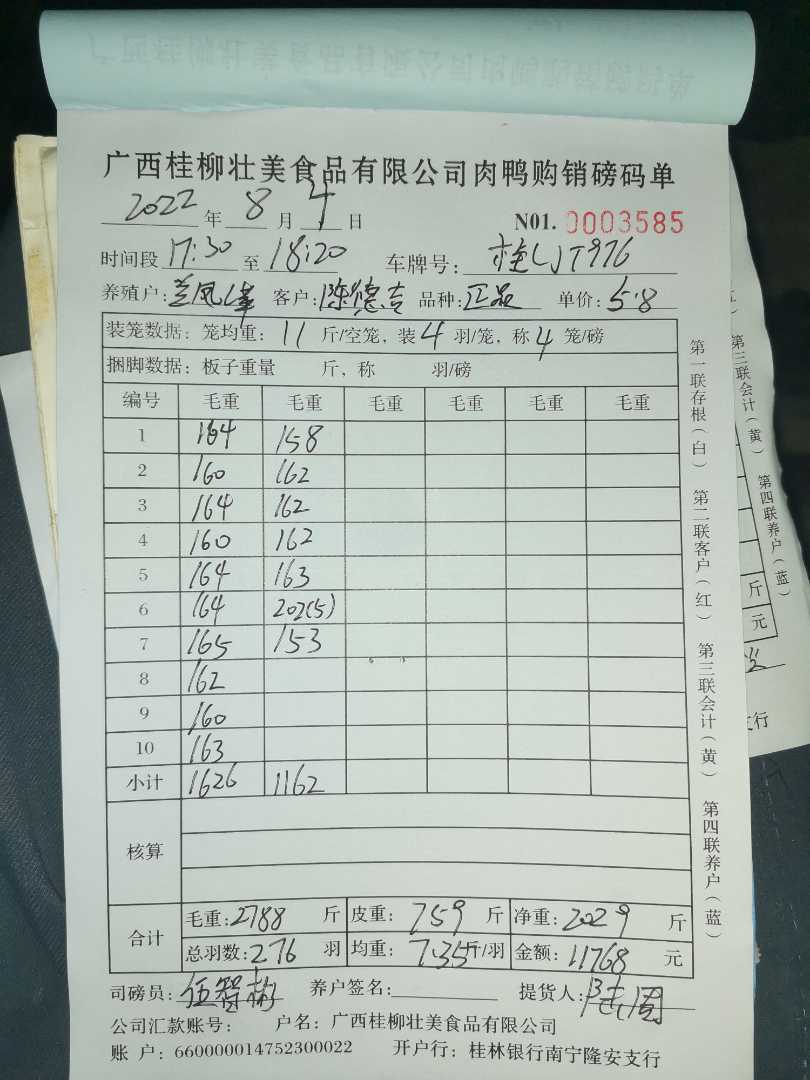 广西桂柳壮美食品有限公司肉鸭购销磅码单
2022 年 8 月 4 日 N01. 0003585
时间段 17:30 至 18:20 车牌号: 桂LJT976
养殖户: 兰凤峰 客户: 陈德吉 品种: 正品 单价: 5.8
装笼数据: 笼均重: 11 斤/空笼, 装 4 羽/笼, 称 4 笼/磅
捆脚数据: 板子重量 斤, 称 羽/磅
编号 毛重 毛重 毛重 毛重 毛重 毛重
1 164 158
2 160 162
3 164 162
4 160 162
5 164 163
6 164 202(5)
7 165 153
8 162
9 160
10 163
小计 1626 1162
核算
合计 毛重: 2788 斤 皮重: 759 斤 净重: 2029 斤
总羽数: 276 羽 均重: 7.35 斤/羽 金额: 11768 元
司磅员: 伍智彬 养户签名: 提货人:
公司汇款账号: 户名: 广西桂柳壮美食品有限公司
账 户: 660000014752300022 开户行: 桂林银行南宁隆安支行
第一联存根(白) 第二联客户(红) 第三联会计(黄) 第四联养户(蓝)
第三联会计(黄) 第四联养户(蓝)
斤
元
支行